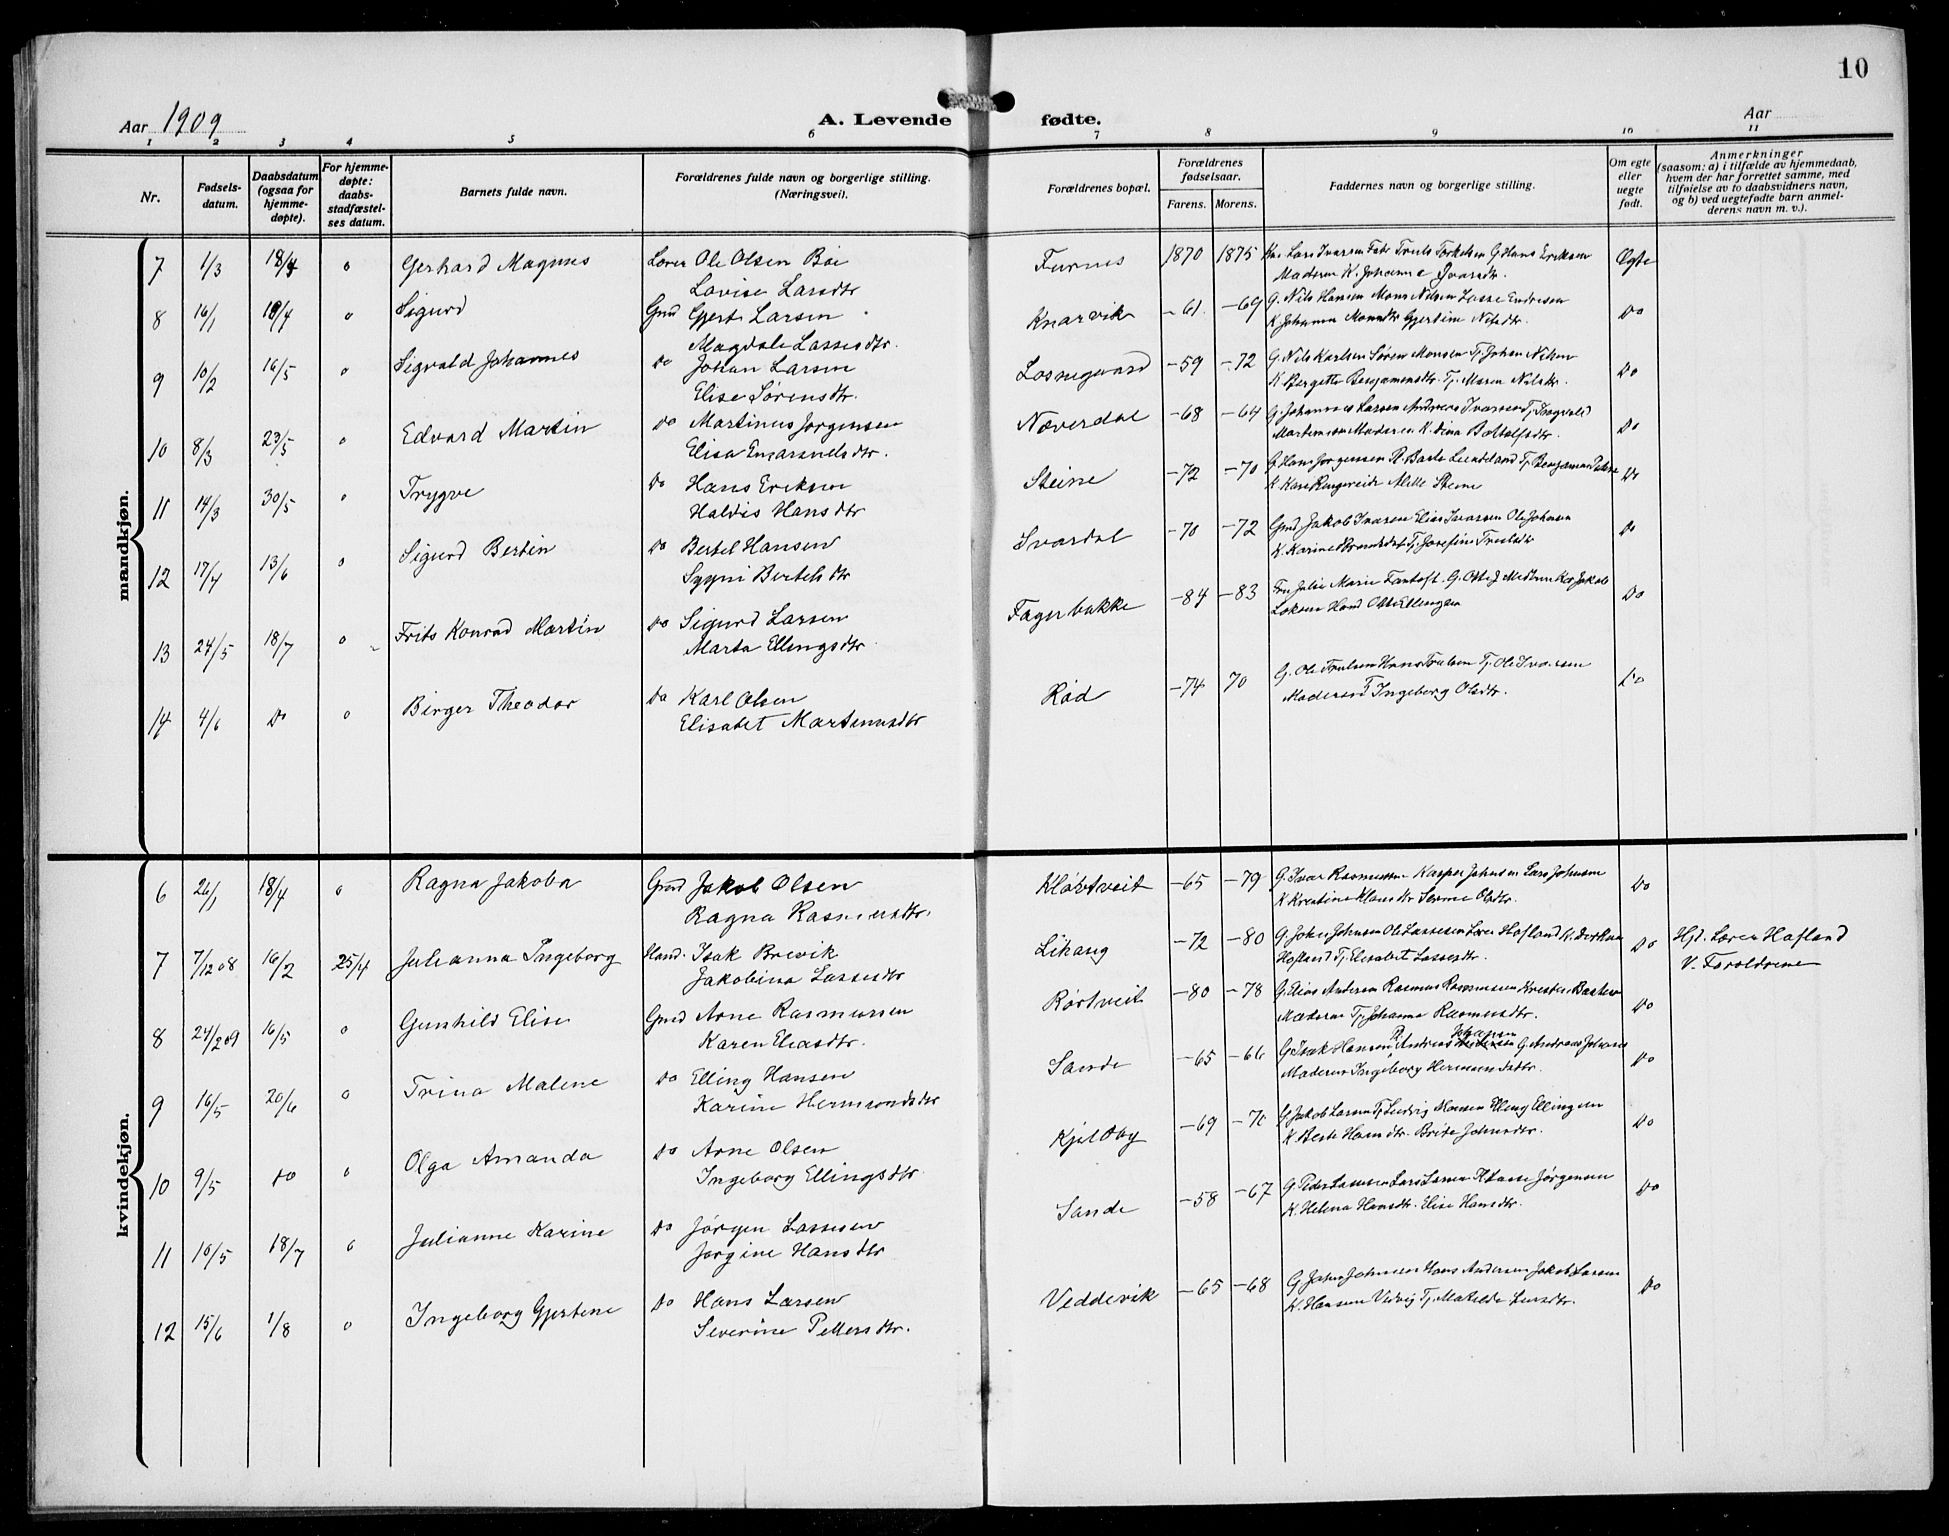 10
Aar 1909
A. Levende fødte.
Aar
1 2 3 4 5 6 7 8 9 10 11
Nr.
Fødsels-datum.
Daabsdatum (ogsaa for hjemme-døpte).
For hjemme-døpte: daabs-stadfæstel-ses datum.
Barnets fulde navn.
Forældrenes fulde navn og borgerlige stilling. (Næringsvei).
Forældrenes bopæl.
Forældrenes fødselsaar.
Farens. Morens.
Faddernes navn og borgerlige stilling.
Om egte eller uegte født.
Anmerkninger (saasom: a) i tilfælde av hjemmedaab, hvem der har forrettet samme, med tilføielse av to daabsvidners navn, og b) ved uegtefødte barn anmel-derens navn m. v.).
mandkjøn.
7 1/3 18/4 0 Gerhard Magnus Lærer Ole Olsen Bøe Furnes 1870 1875 Lars Ivarsen Truls Torkelsen G. Hans Eriksen Ægte
Lovise Larsdtr Moderen K. Johanne Ivarsdtr.
8 16/1 18/4 0 Sigurd Gmd Gjert Larsen Knarvik -61 -69 G. Nils Hansen Mons Nilsen Lasse Endresen Do
Magdale Lassesdtr. K. Johanna Monsdtr Gjertine Nilsdtr.
9 10/2 16/5 0 Sigvald Johannes Do Johan Larsen Losnegaard -59 -72 G. Nils Karlsen Søren Monsen Tj. Johan Nilsen Do
Elise Sørensdtr. K. Bergitte Benjaminsdtr. Tj. Maren Nilsdtr.
10 8/3 23/5 0 Edvard Martin Do Martinus Jørgensen Næverdal -68 -64 G. Johannes Larsen Andreas Ivarsen Tj. Ingvald Do
Elisa Moderen K. Dina
11 14/3 30/5 0 Trygve Do Hans Eriksen Steine -72 -70 G. Hans Jørgensen Tj. Benjamin Do
Haldis Hansdtr K. Kari Steine
12 17/4 13/6 0 Sigurd Bertin Do Bertel Hansen Svardal -70 -72 Gmd Jakob Ivarsen Elias Ivarsen Ole Johnsen Do
Sygni Bertelsdtr K. Karine Tj. Josefine Trulsdtr
13 24/5 18/7 0 Frits Konrad Martin Do Sigurd Larsen Fagerbakke -84 -83 Fru Julie Marie Fantoft. G. Do
Marta Ellingsdtr. Ellingsen
14 4/6 Do 0 Birger Theodor Do Karl Olsen Rød -74 70 G. Ole Trulsen Hans Trulsen Tj. Ole Ivarsen Do
Elisabet Martinusdtr Moderen Tj Ingeborg Olsdtr.
kvindekjøn.
6 26/1 18/4 0 Ragna Jakoba Gmd Jakob Olsen Kløvtveit -65 -79 G. Ivar Rasmussen Kasper Johnsen Lars Johnsen Do
Ragna Rasmusdtr. K. Kristine Klausdtr Olsdtr.
7 7/12 08 16/2 25/4 Julianna Ingeborg Hand. Isak Brevik Lihaug -72 -80 G. John Johnsen Ole Lassesen Lærer Hofland K. Do Hjd. Lærer Hofland
Jakobina Lassesdtr Hofland Tj. Elisabet Lassesdtr. V. Forældrene
8 24/2 09 16/5 0 Gunhild Elise Gmd Arne Rasmussen Rørtveit -80 -78 G. Elias Andersen Rasmus Rasmussen Kristen Do
Karen Eliasdtr. Moderen Tj. Johanna Rasmusdtr.
9 16/5 20/6 0 Trina Malene Do Elling Hansen Sande -65 -66 G. Isak Hansen Andreas Johansen G. Andreas Do
Karine Hermundsdtr Moderen Ingeborg
10 9/5 Do 0 Olga Amanda Do Arne Olsen Kjelby -69 -70 G. Jakob Larsen Tj. Ludvig Elling Ellingsen Do
Ingeborg Ellingsdtr. K. Hansdtr. Brita Johnsdtr.
11 10/5 18/7 0 Julianne Karine Do Jørgen Lassesen Sande -58 -67 G. Peder Lassesen Lars Larsen Lasse Jørgensen Do
Jørgine Hansdtr K. Helena Hansdtr. Elise Hansdtr.
12 15/6 1/8 0 Ingeborg Gjertine Do Hans Larsen Veddevik -65 -68 G. John Johnsen Hans Andersen Jakob Larsen Do
Severine Pettersdtr. K. Tj. Matilde